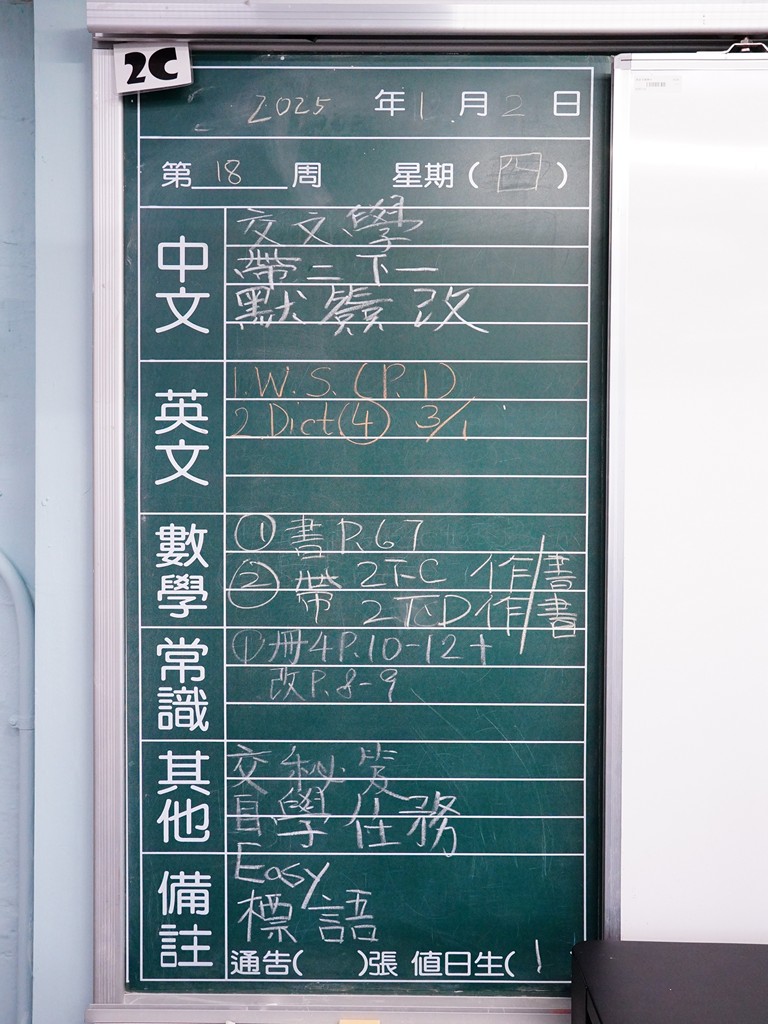 2C
2025 年 1 月 2 日
第 18 周 星期 ( 四 )
中文
交文學
帶二下一
默簽改
英文
1. W.S. (P. 1)
2. Dict (4) 3/1
數學
① 書 P.67
② 帶 2下C 作/書
2下D 作/書
常識
① 冊4 P.10-12 +
改 P.8-9
其他
交
自學任務
備註
Easy
標語
通告( )張 值日生( 1